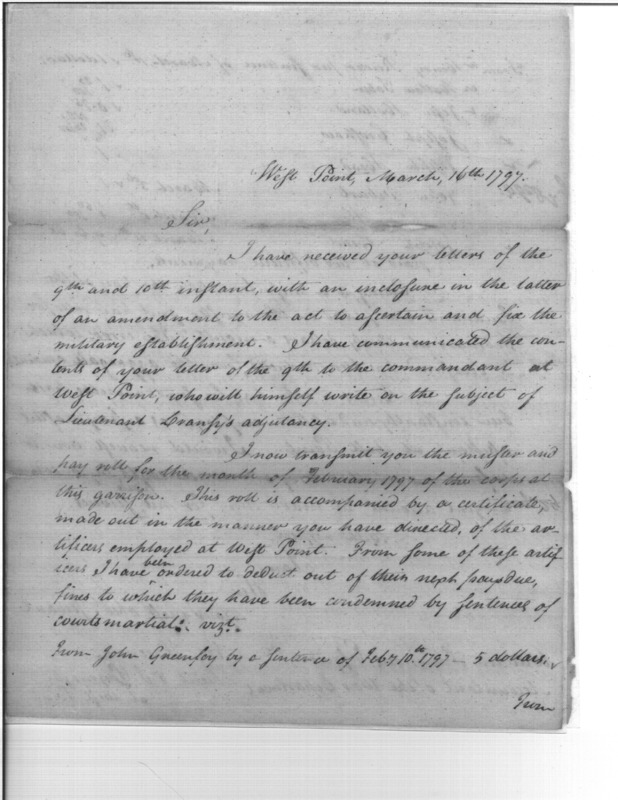 West Point, March, 16th 1797.
Sir,
I have received your letters of the
9th and 10th instant, with an inclosure in the latter
of an amendment to the act to ascertain and fix the
military establishment. I have communicated the con-
tents of your letter of the 9th to the commandant at
West Point, who will himself write on the subject of
Lieutenant adjutancy.
I now transmit you the muster and
pay roll for the month of February 1797 of the corps at
this garrison. This roll is accompanied by a certificate,
made out in the manner you have directed, of the ar-
tificers employed at West Point. From some of these artif-
icers I have been ordered to deduct out of their next pay due,
fines to which they have been condemned by sentences of
courts martial: vizt.
From John by a sentence of Feby 10th 1797 — 5 dollars.
From